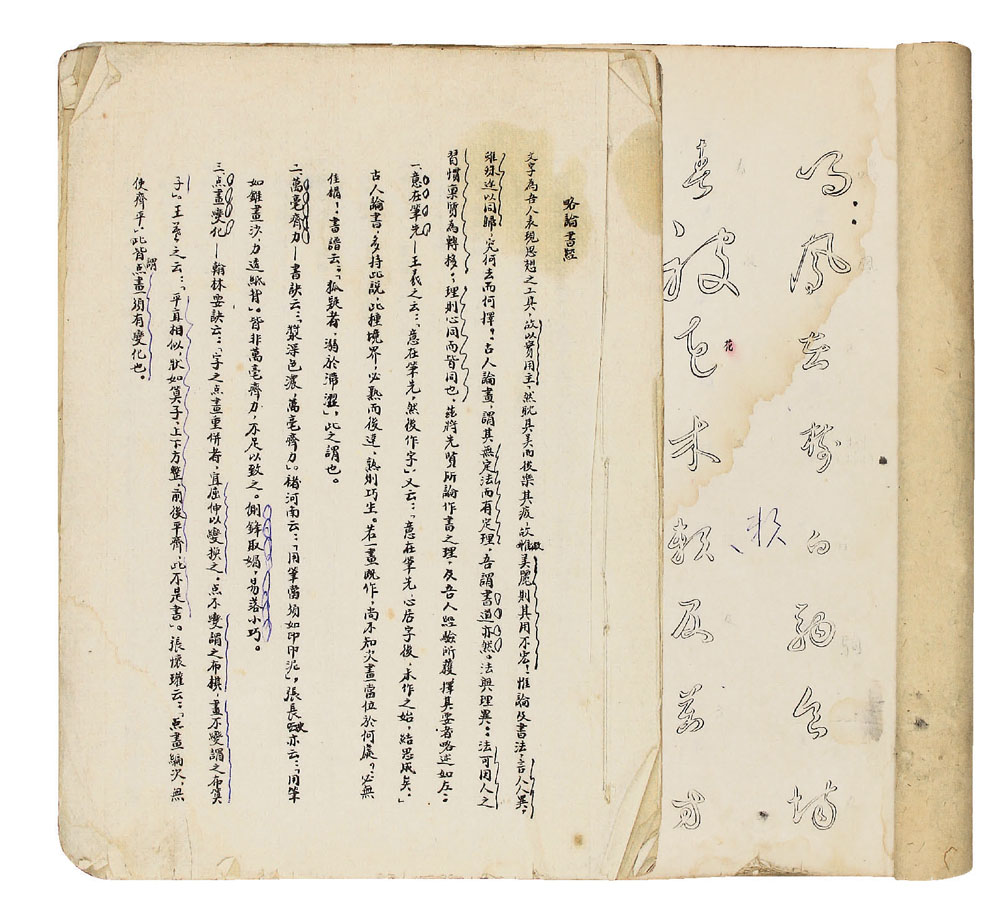 鳴鳳在樹白駒食場
頼
花
化被草木賴及萬方
略論書經
文字為吾人表現思想之工具，故以實用主，然耽其美而後樂其疲，故唯美麗則其用不宏；惟論及書法，言人人異，
雖殊途以同歸，究何去而何擇？古人論畫，謂其無定法而有定理，吾謂書道亦然。法與理異：法可因人之
習慣稟質為轉移；理則心同而皆同也，茲將先賢所論作書之理，及吾人經驗所獲擇其要者略述如左：
一、意在筆先—王羲之云：「意在筆先，然後作字」，又云：「意在筆先，心居字後，未作之始，結思成矣。」
古人論書，多持此說，此種境界，必熟而後達，熟則巧生。若一畫既作，尚不知次畫當位於何處？必無
佳構！書譜云：「狐疑者，溺於滯澀」，此之謂也。
二、萬毫齊力—書訣云：「漿深色濃，萬毫齊力」。褚河南云：「用筆當須如印印泥」，張長史亦云：「用筆
如錐畫沙，力透紙背」。皆非萬毫齊力，不足以致之。側鋒取媚，易落小巧。
三、点畫變化—翰林要訣云：「字之点畫重併者，宜屈伸以變換之，点不變謂之布棋，畫不變謂之布算
子」。王羲之云：「平直相似，狀如算子，上下方整，前後平齊，此不是書」。張懷瓘云：「点畫編次，無
使齊平，」此皆謂点畫須有變化也。